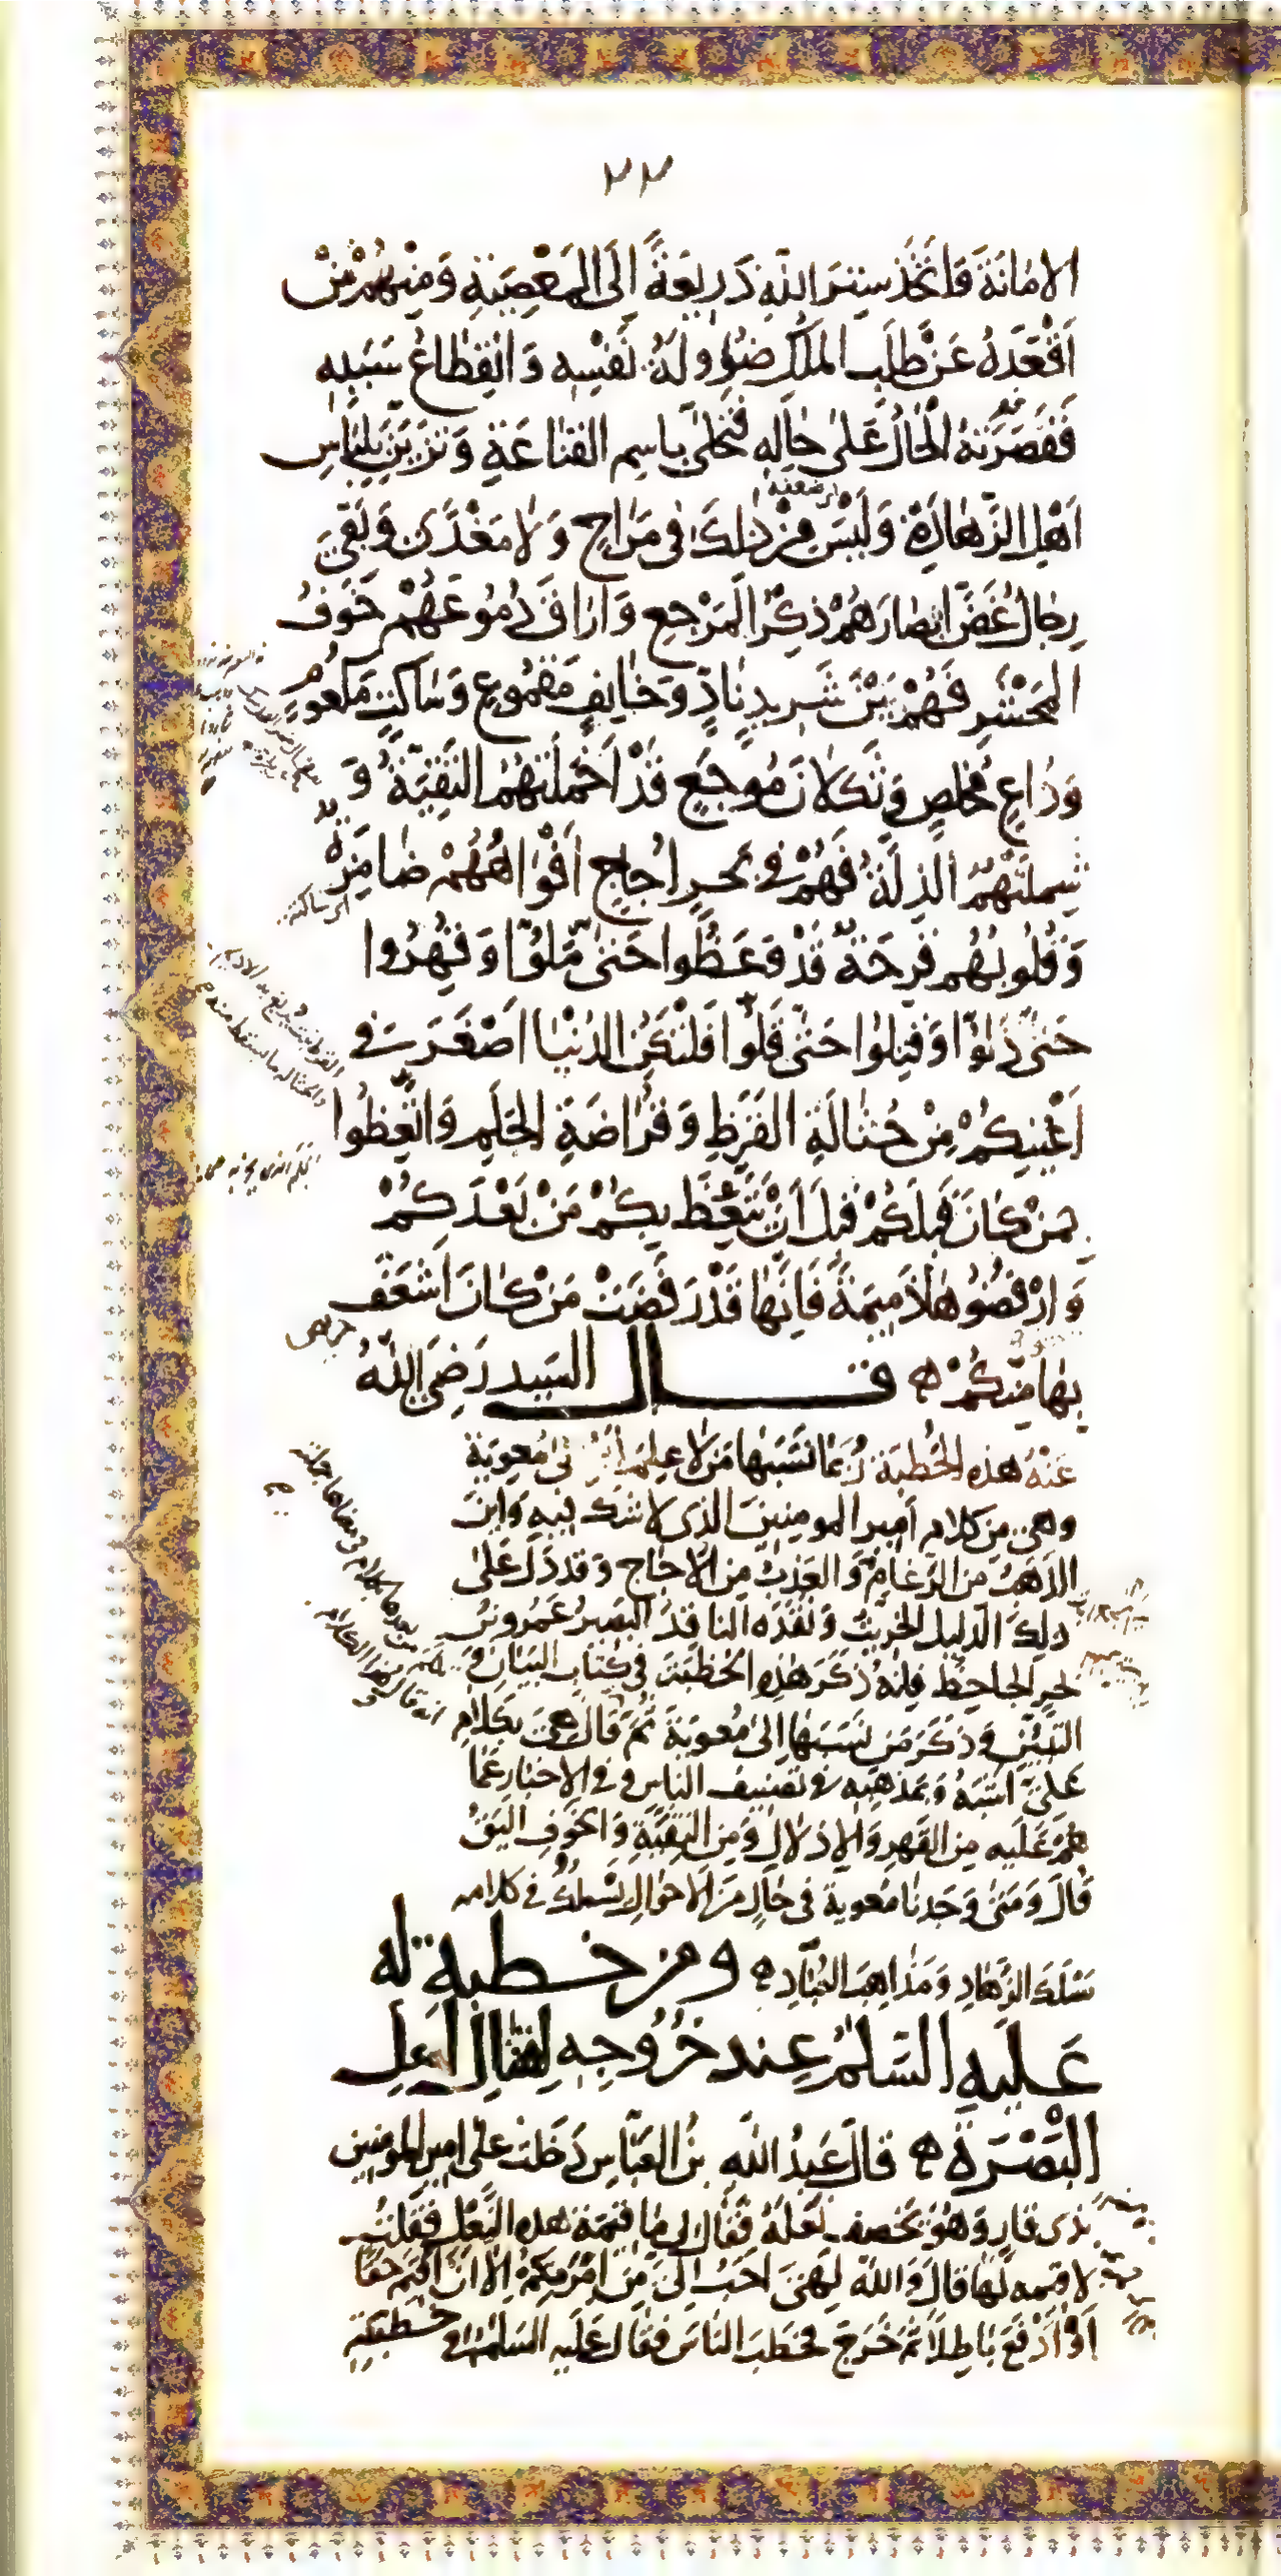 ٢٣
الامٰانَةَ وَاتَّخَذَ سِتْرَ اللّٰهِ ذَرِيعَةً اِلَى المَعْصِيَةِ وَمِنْهُمْ مَنْ
اَقْعَدَهُ عَنْ طَلَبِ المُلْكِ ضُؤُولَةُ نَفْسِهِ وَانْقِطٰاعُ سَبَبِهِ
فَقَصَرَتْهُ الْحٰالُ عَلىٰ حٰالِهِ فَتَحَلّىٰ بِاسِمِ القَنٰاعَةِ وَتَزَيَّنَ بِلِبٰاسِ
اَهْلِ الزَّهٰادَةِ وَلَيْسَ مِنْ ذٰلِكَ فى مَرٰاحٍ وَلٰا مَغْدًى وَبَقِيَ
رِجٰالٌ غَضَّ ابْصٰارَهُمْ ذِكْرُ المَرْجِعِ وَارٰاقَ دُمُوعَهُمْ خَوفُ
المَحْشَرِ فَهُمْ بَيْنَ شَرِيدٍ نٰادٍّ وَخٰايِفٍ مَقْمُوعٍ وَسٰاكِتٍ مَكْعُومٍ
وَدٰاعٍ مُخْلِصٍ وَثَكلٰانَ مُوجَعٍ قَدْ اَخْمَلَتْهُمُ التَّقِيَّةُ وَ
شَمِلَتْهُمُ الذِلَّةُ فَهُمْ فى بَحْرٍ اُجٰاجٍ اَفْوٰاهُهُمْ ضٰامِزَةٌ
وَقُلُوبُهُم قَرِحَةٌ قَدْ وَعَظُوا حَتىٰ مَلُّوا وَقُهِرُوا
حَتىٰ ذَلُّوا وَقُتِلُوا حَتىّٰ قَلُّوا فَلْتَكُنِ الدُنْيٰا اَصْغَرَ فى
اَعْيُنِكُمْ مِنْ حُثٰالَةِ القَرَظِ وَقُرٰاضَةِ الجَلَمِ وَاتَّعِظُوا
بِمَنْ كٰانَ قَبلَكُمْ قَبلَ اَنْ يَتَّعِظَ بِكُمْ مَنْ بَعْدَكُمْ
وَارْفُضُوهٰا ذَمِيمَةً فَاِنَّهٰا قَدْ رَفَضَتْ مَنْ كٰانَ اَشْغَفَ
بِهٰا مِنْكُمْ ه قال السَيد رَضِيَ اللّٰهُ
عَنْهُ هذِهِ الخُطبَة رُبَّمٰا نَسَبَهٰا مَن لٰا عِلمَ لَهُ اِلىٰ مُعٰوِيَةَ
وهىَ مِن كَلامِ اَمِيرِ المومِنِينَ الذى لا شَكَّ فِيهِ وَاَيْنَ
الذَهَبُ مِنَ الرَّغٰامِ وَالعَذِبُ مِنَ الاُجٰاجِ وَقَد دَلَّ عَلىٰ
ذلِكَ الدّليلُ الخِرِّيتُ وَنَقَدَهُ النٰاقِدُ البَصيرُ عَمْرُو بنُ
بَحرٍ الجٰاحِظُ فاِنَّهُ ذَكَرَ هٰذِهِ الخُطْبَةَ فى كِتٰابِ البَيٰانِ وَ
التَبْيين وَذَكَرَ مَن نَسَبَهٰا اِلىٰ مُعٰوِيَةَ ثُمَّ قٰالَ هِىَ بِكَلٰامِ
عَلىٍّ اَشْبَهُ وَبِمَذْهَبِهِ فى تَصْنِيفِ النٰاسِ وَفى الاِخْبٰارِ عَمّا
هُمْ عَلَيهِ مِنَ القَهرِ وَالاِذلالِ وَمِنَ التَقِيَّةِ وَالخَوفِ اَلْيَقُ
قٰالَ وَمَتىٰ وَجَدنٰا مُعوِيةَ فى حٰالٍ مِنَ الاَحوٰالِ يَسْلُكُ فى كلامه
مَسْلَكَ الزُّهٰادِ وَمَذٰاهِبَ العُبّادِ ه ومِن خطبة له
عَليهِ السَّلٰمُ عِند خُرُوجِهِ لِقِتٰالِ اَهل
البَصْرَةِ ه قٰالَ عَبدُ اللّٰهِ بنُ العَبّاسِ دَخَلتُ عَلى اميرِ المومِنين
بذى قارٍ وَهُوَ يَخصِفُ نَعْلَهُ فَقٰالَ لى مٰا قِيمَةُ هٰذِهِ النَّعْلِ فَقُلتُ
لا قيمةَ لَهٰا قٰالَ وَاللّٰهِ لَهِىَ اَحَبُّ اِلَىَّ مِن اِمْرَتِكُمْ اِلّا اَنْ اُقيمَ حَقّا
اَوْ اَدْفَعَ بٰاطِلًا ثُمَّ خَرَجَ فَخَطَبَ النّاسَ فَقٰالَ عَلَيهِ السَلٰم فى خطبَتِهِ